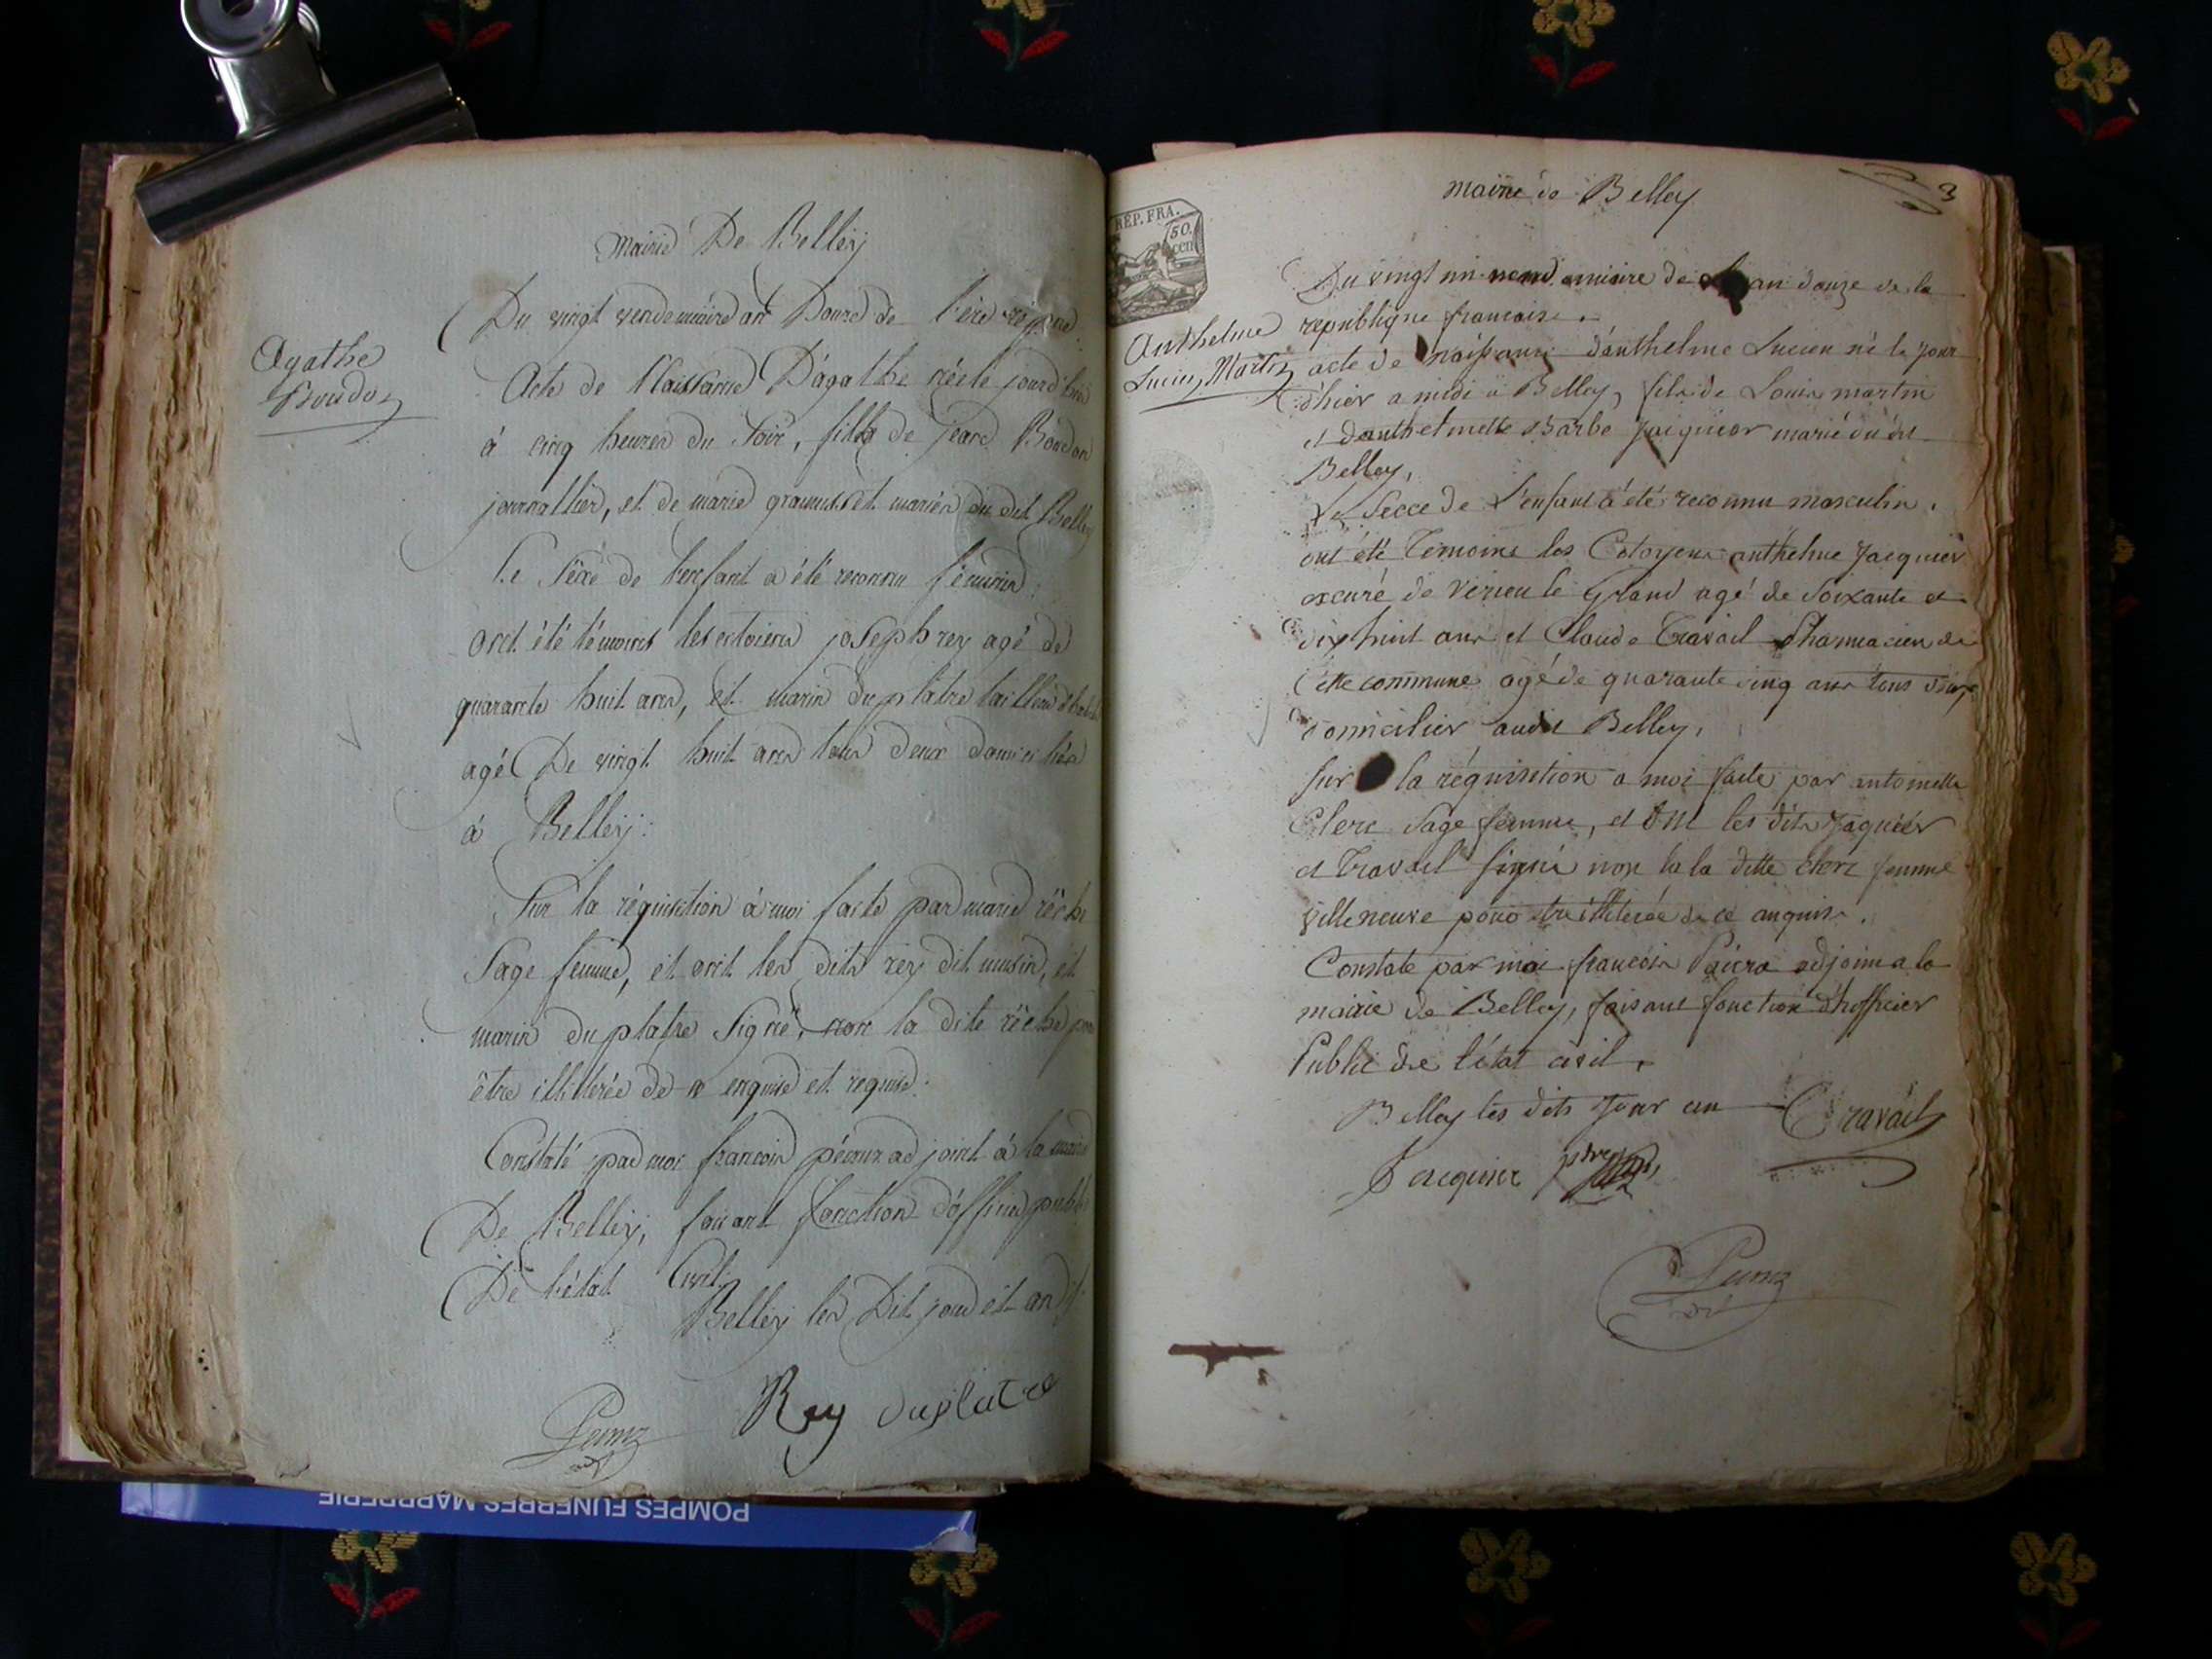 Mairie De Belleÿ
Du vingt vendemiaire an Douze de l'ère
Agathe
Boudon
Acte de Naissance D'agathe née le jourd'hui
à cinq heures du Soir, fille de jean Boudon
journallier, et de marie mariés du dit Belleÿ
Le Sexe de l'enfant a été reconnu féminin.
ont été témoins les citoiens joseph rey agé de
quarante huit ans, et marin duplatre tailleur
agé De vingt huit ans tous deux domiciliés
à Belleÿ.
Sur la réquisition à moi faite par marie
Sage femme, et ont les dits rey dit musin, et
marin duplatre Signé, non la dite
être illiterée de ce enquise et requise.
Constaté par moi francois adjoint à la mairie
De Belleÿ, faisant fonction d'officier public
De l'état Civil.
Belleÿ les Dit jour et an
Rey duplatre
mairie de Belley
3
REP. FRA.
50.
cen
Du vingt un vendemiaire de l'an douze de la
republique francaise.
Anthelme
Lucien Martin
acte de naissance d'anthelme Lucien né le jour
d'hier a midi a Belley, fils de Louis martin
et danthelmette Barbe Jaiquier marié du dit
Belley,
Le Secce de L'enfant a été reconnu masculin.
ont été Temoins les Citoyens anthelme Jacquier
excuré de Virieu le Grand agé de Soixante et
dix huit ans et Claude Travail Pharmacien de
Cette commune agé de quarante cinq ans tous deux
domicilier audit Belley,
Sur la réquisition a moi faite par antoinette
Clerc Sage femme, et ont les dits Jaquier
et Travail Signé non la la ditte Clerc femme
Villeneuve pour etre illiterée de ce anquise.
Constate par moi francois adjoint a la
mairie de Belley, faisant fonction d'hofficier
Public de l'état civil.
Belley les dits Jour an
Travail
Jacquier ptre
POMPES FUNEBRES MARBRERIE